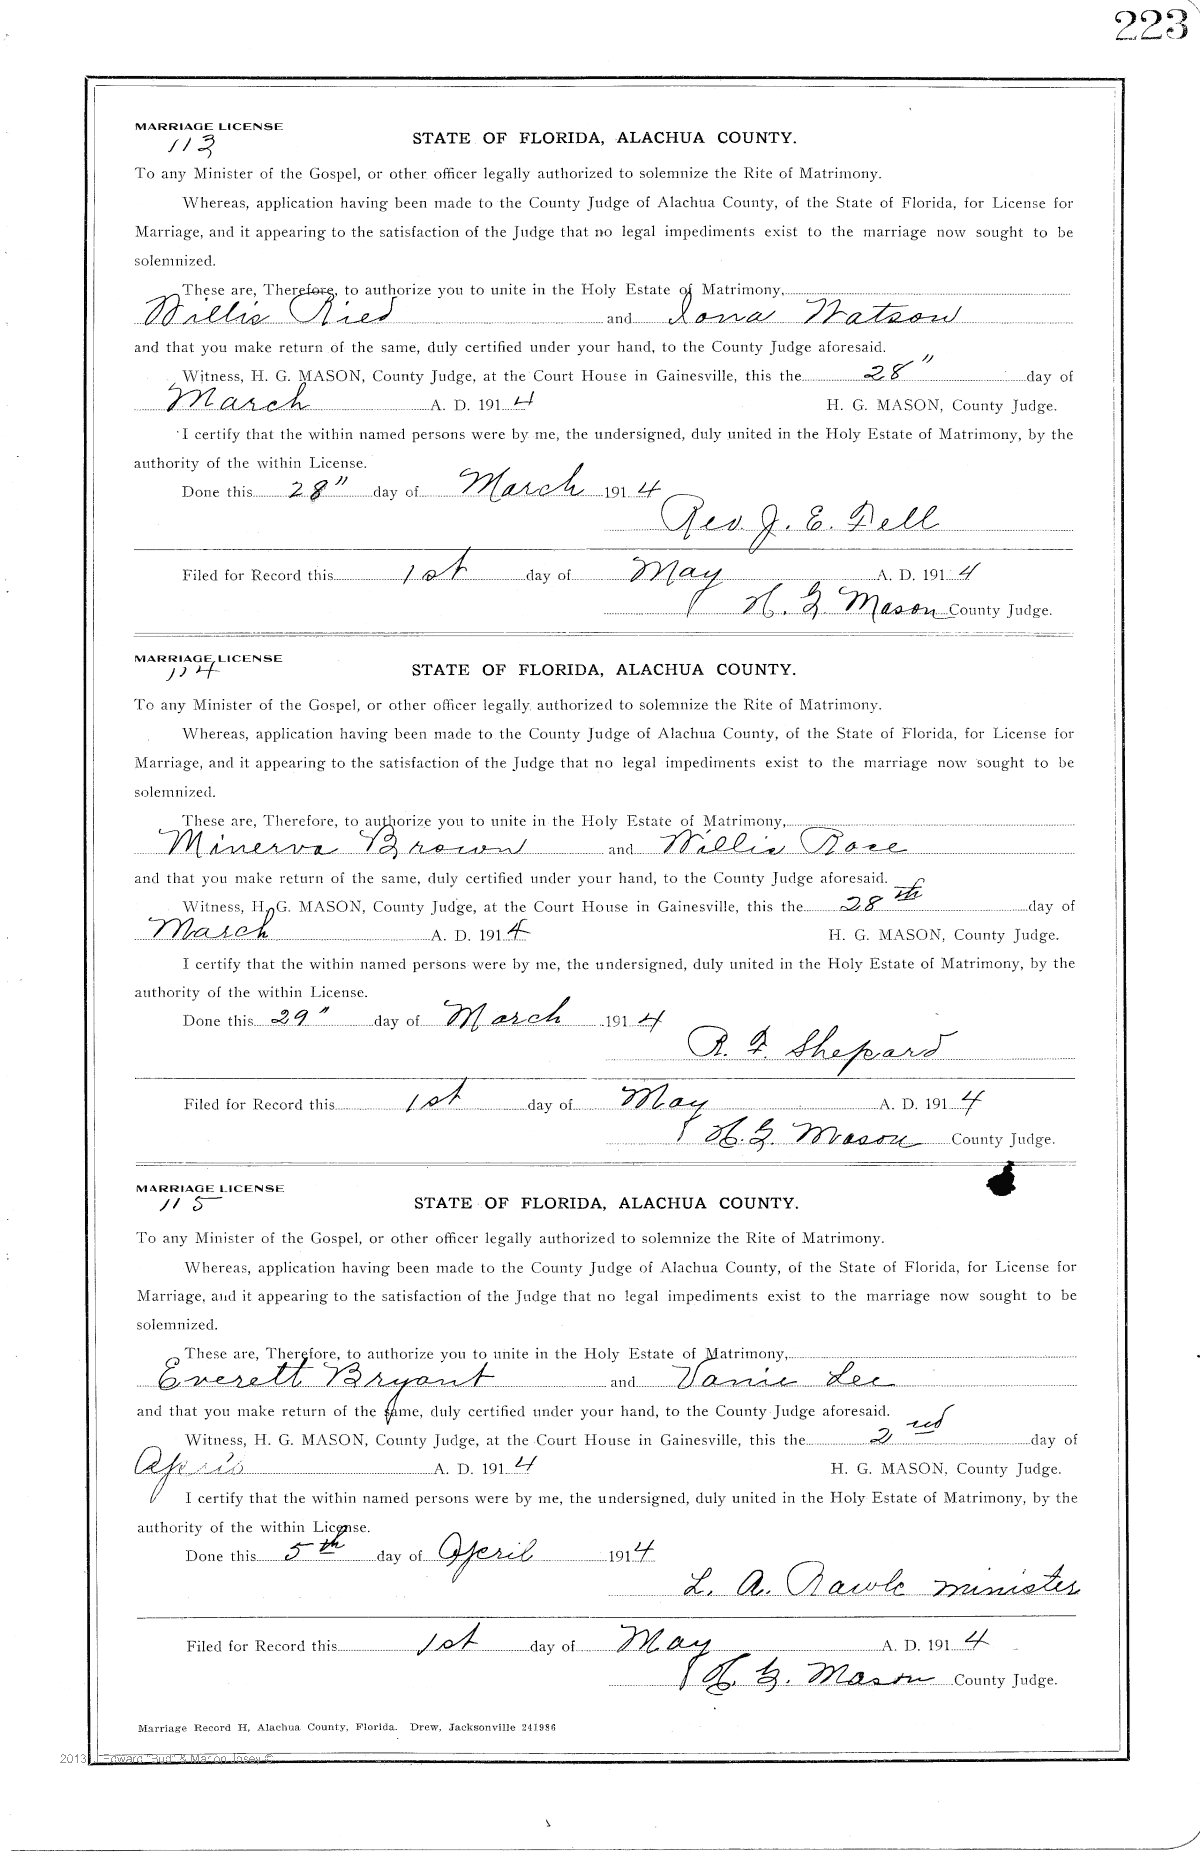 223
MARRIAGE LICENSE
113
STATE OF FLORIDA, ALACHUA COUNTY.
To any Minister of the Gospel, or other officer legally authorized to solemnize the Rite of Matrimony.
Whereas, application having been made to the County Judge of Alachua County, of the State of Florida, for License for
Marriage, and it appearing to the satisfaction of the Judge that no legal impediments exist to the marriage now sought to be
solemnized.
These are, Therefore, to authorize you to unite in the Holy Estate of Matrimony,
Willis Ried and Iona Watson
and that you make return of the same, duly certified under your hand, to the County Judge aforesaid.
Witness, H. G. MASON, County Judge, at the Court House in Gainesville, this the 28" day of
March A. D. 1914 H. G. MASON, County Judge.
I certify that the within named persons were by me, the undersigned, duly united in the Holy Estate of Matrimony, by the
authority of the within License.
Done this 28" day of March 1914
Rev. J. E. Dell
Filed for Record this 1st day of May A. D. 1914
H. G Mason County Judge.
MARRIAGE LICENSE
114
STATE OF FLORIDA, ALACHUA COUNTY.
To any Minister of the Gospel, or other officer legally authorized to solemnize the Rite of Matrimony.
Whereas, application having been made to the County Judge of Alachua County, of the State of Florida, for License for
Marriage, and it appearing to the satisfaction of the Judge that no legal impediments exist to the marriage now sought to be
solemnized.
These are, Therefore, to authorize you to unite in the Holy Estate of Matrimony,
Minerva Brown and Willis Rose
and that you make return of the same, duly certified under your hand, to the County Judge aforesaid.
Witness, H. G. MASON, County Judge, at the Court House in Gainesville, this the 28th day of
March A. D. 1914 H. G. MASON, County Judge.
I certify that the within named persons were by me, the undersigned, duly united in the Holy Estate of Matrimony, by the
authority of the within License.
Done this 29" day of March 1914
R. F. Shepard
Filed for Record this 1st day of May A. D. 1914
H. G. Mason County Judge.
MARRIAGE LICENSE
115
STATE OF FLORIDA, ALACHUA COUNTY.
To any Minister of the Gospel, or other officer legally authorized to solemnize the Rite of Matrimony.
Whereas, application having been made to the County Judge of Alachua County, of the State of Florida, for License for
Marriage, and it appearing to the satisfaction of the Judge that no legal impediments exist to the marriage now sought to be
solemnized.
These are, Therefore, to authorize you to unite in the Holy Estate of Matrimony,
Everett Bryant and Vanie Lee
and that you make return of the same, duly certified under your hand, to the County Judge aforesaid.
Witness, H. G. MASON, County Judge, at the Court House in Gainesville, this the 2nd day of
April A. D. 1914 H. G. MASON, County Judge.
I certify that the within named persons were by me, the undersigned, duly united in the Holy Estate of Matrimony, by the
authority of the within License.
Done this 5th day of April 1914
L. A. Rawls minister
Filed for Record this 1st day of May A. D. 1914
H. G. Mason County Judge.
Marriage Record H, Alachua County, Florida. Drew, Jacksonville 241986
2013 Edward "Bud" & Mason Josey ©